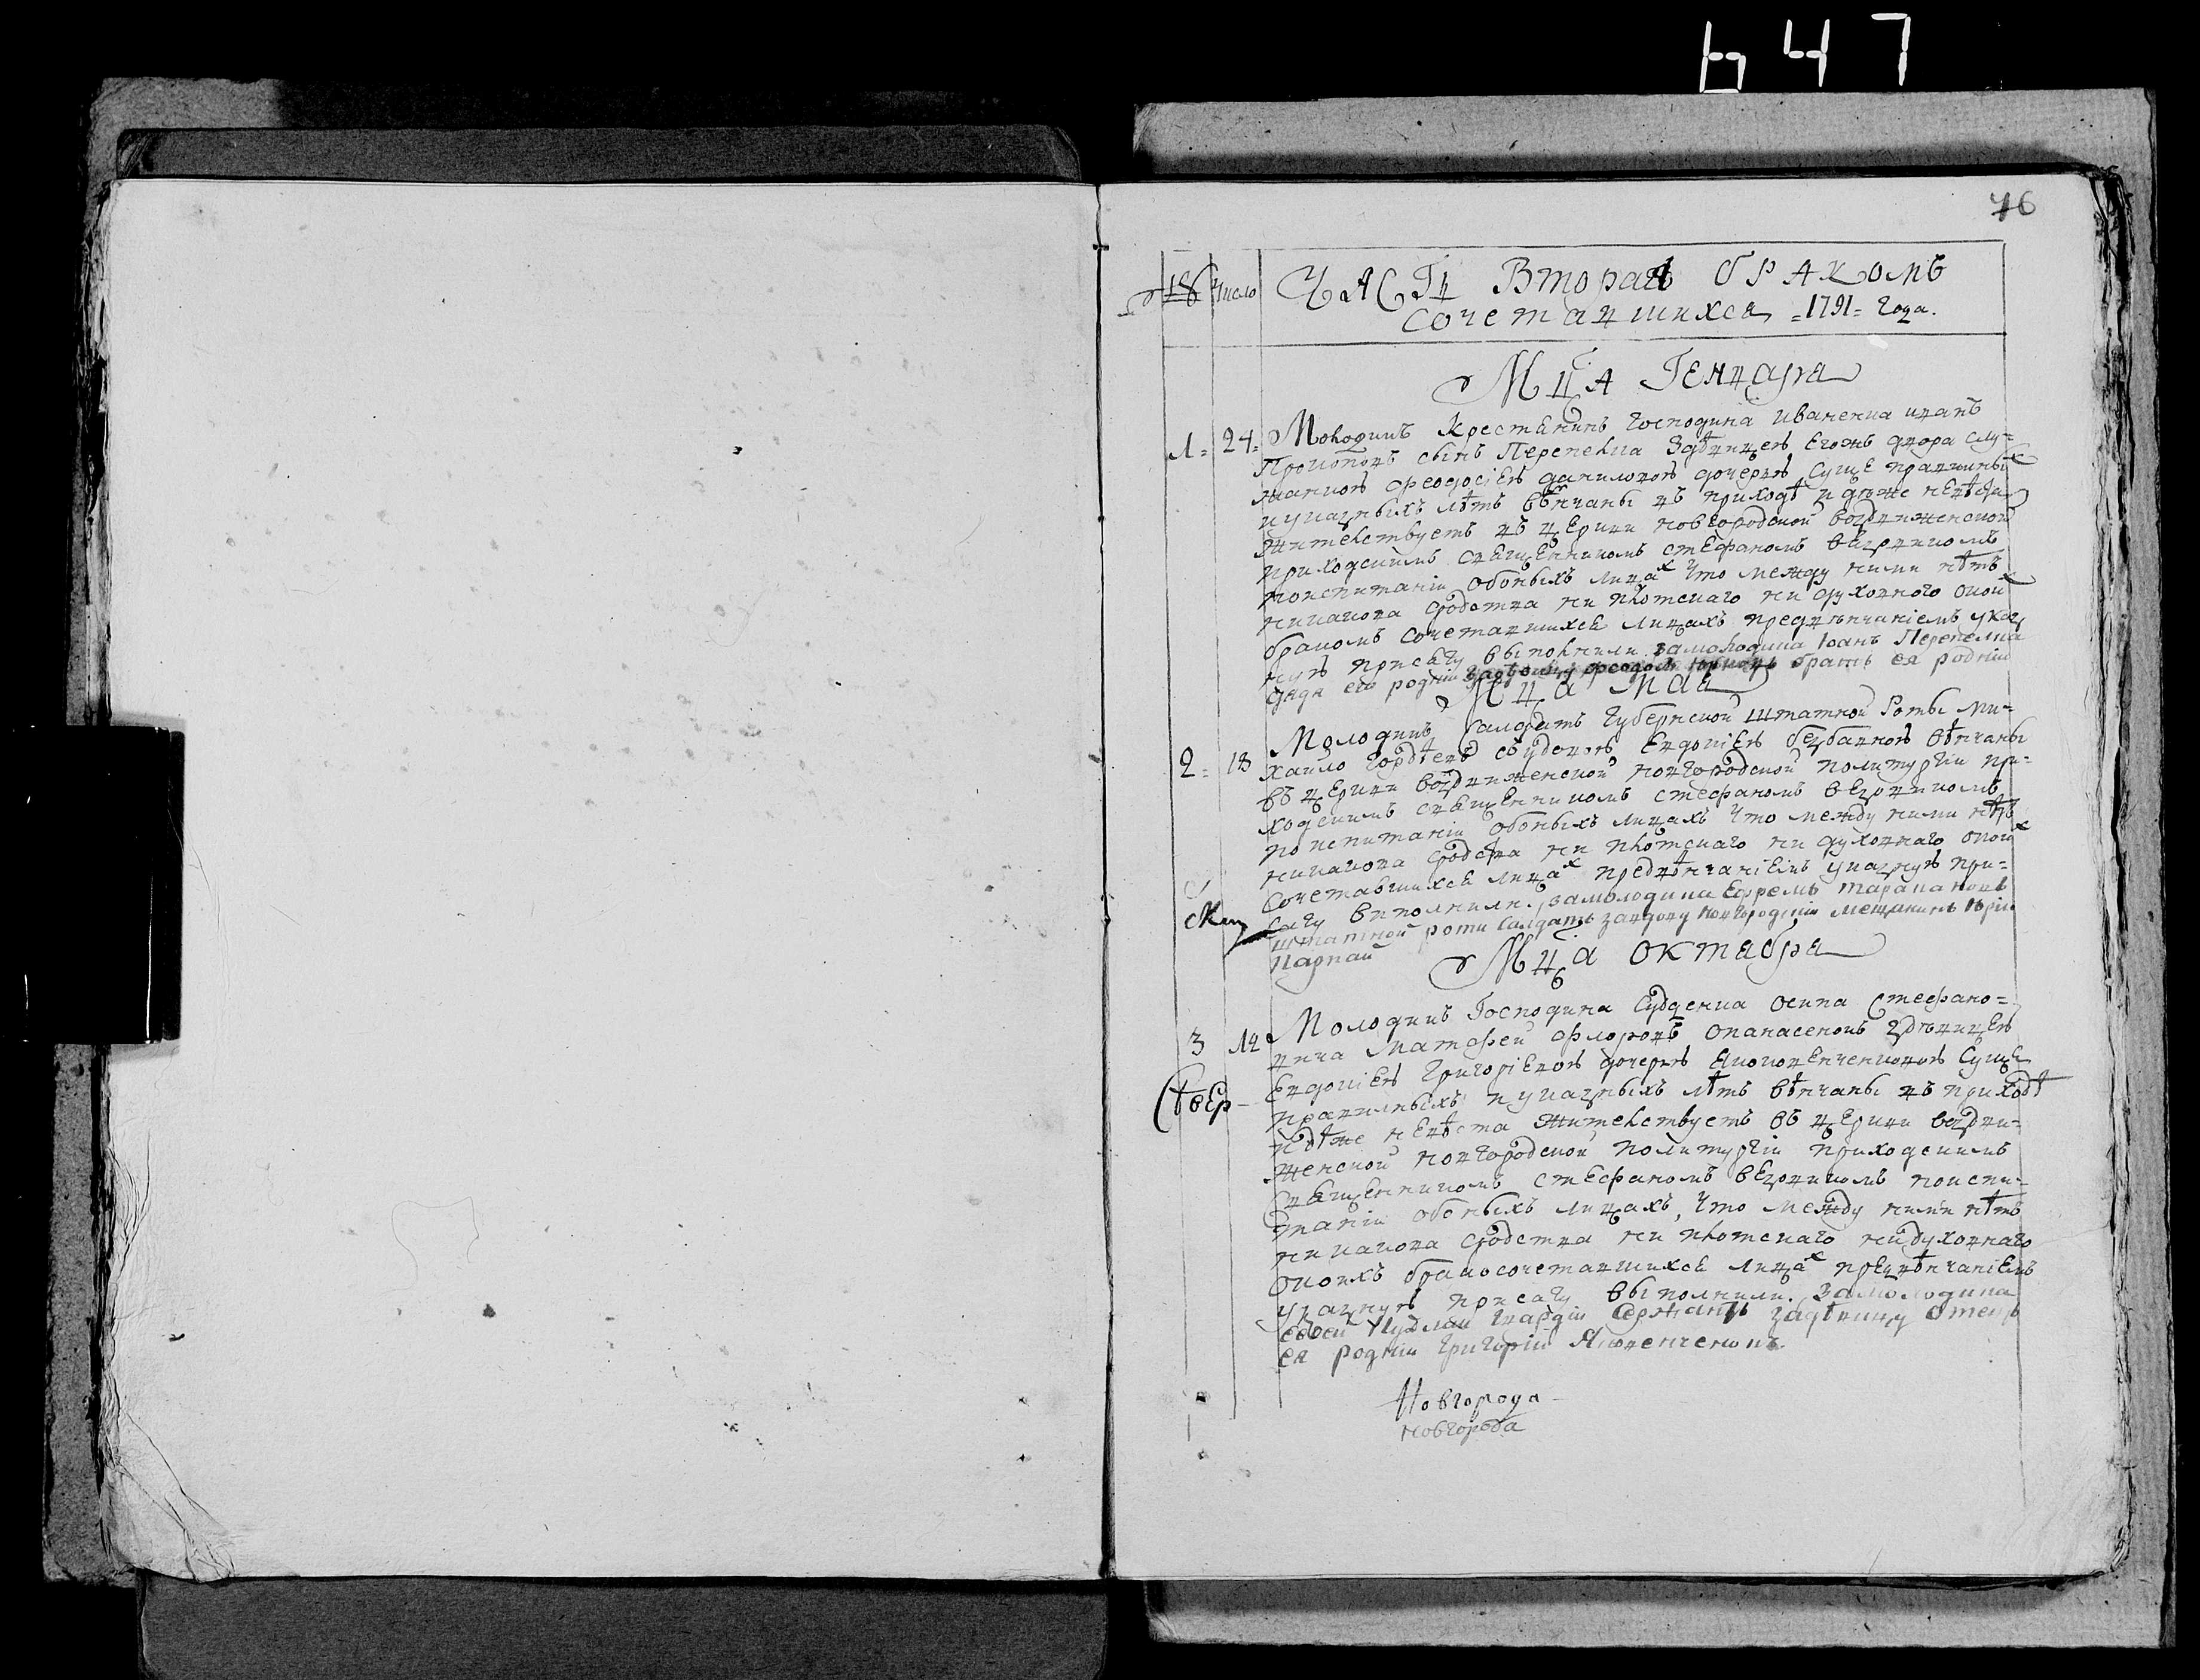 647
76
число
ЧАСТЬ Вторая бракомъ
сочетавшихся =1791= года.
Мца Генваря
1. 24. Молодикъ крестянинъ господина Иваненка иванъ
Прокоповъ сынъ Перепелка здѣвицею егожъ двора слу=
жанкою феодосіею даниловою дочерью суще правилных
иуказныхъ лѣтъ вѣнчаны въ приходѣ идѣже невѣста
жителствуетъ въ церкви новгородской воздвиженской
приходскимъ священникомъ стефаномъ
поиспитаніи обоныхъ лицах что между ними нѣтъ
никакова сродства ни плотскаго ни духовного окоих
бракомъ сочетавшихся лицахъ предвѣнчаніемъ указ
ную присягу выполнили. замолодика Іоанъ Перепелка
дядя его родній братъ ея родній
Мца мая
2. 18 Молодикъ салдатъ губернской штатной роты ми=
хайло гордѣевъ сѹдовою Евдокіею вѣнчаны
въ церкви воздвиженской новгородской политургіи при=
ходскимъ священникомъ стефаномъ
поиспитаніи обоныхъ лицахъ что между ними нѣтъ
никакова сродства ни плотскаго ни духовнаго окоих
сочетавшихся лицах предвѣнчаніемъ указную при=
сягу виполнили. замолодика Ефремъ таранановъ
штатной роти салдатъ завдову новгородскій мещанинъ
Мца октября
3 14 Молодикъ Господина Судденка осипа Стефано=
вича Матфей флоровъ опанасенокъ здѣвицею
Евдокіею григоріевою дочерью суще
Свѣр-
правилныхъ иуказныхъ лѣтъ вѣнчаны въ приходѣ
идѣже невѣста жителствуетъ въ церкви воздви=
женской новгородской политургіи приходскимъ
священникомъ стефаномъ поиспи=
таніи обоныхъ лицахъ, что между ними нѣтъ
никакова сродства ни плотскаго нидуховнаго
окоихъ бракосочетавшихся лицах предвѣнчаніемъ
указную присягу выполнили. замолодика
гвардіи сержантъ задѣвицу отецъ
ея родній григорій
Новгорода
новгорода